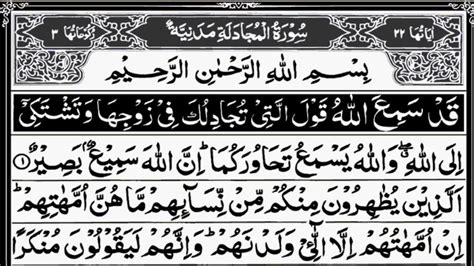 اٰیَاتُهَا ٢٢ سُوْرَةُ الْمُجَادَلَةِ مَدَنِیَّةٌ رُكُوْعَاتُهَا ٣
بِسْمِ اللّٰهِ الرَّحْمٰنِ الرَّحِیْمِ
قَدْ سَمِعَ اللّٰهُ قَوْلَ الَّتِیْ تُجَادِلُكَ فِیْ زَوْجِهَا وَ تَشْتَكِیْۤ
اِلَی اللّٰهِ ۖۗ وَ اللّٰهُ یَسْمَعُ تَحَاوُرَكُمَا ؕ اِنَّ اللّٰهَ سَمِیْعٌۢ بَصِیْرٌ ۝١
اَلَّذِیْنَ یُظٰهِرُوْنَ مِنْكُمْ مِّنْ نِّسَآىِٕهِمْ مَّا هُنَّ اُمَّهٰتِهِمْ ؕ
اِنْ اُمَّهٰتُهُمْ اِلَّا الّٰٓـِٔیْ وَلَدْنَهُمْ ؕ وَ اِنَّهُمْ لَیَقُوْلُوْنَ مُنْكَرًا